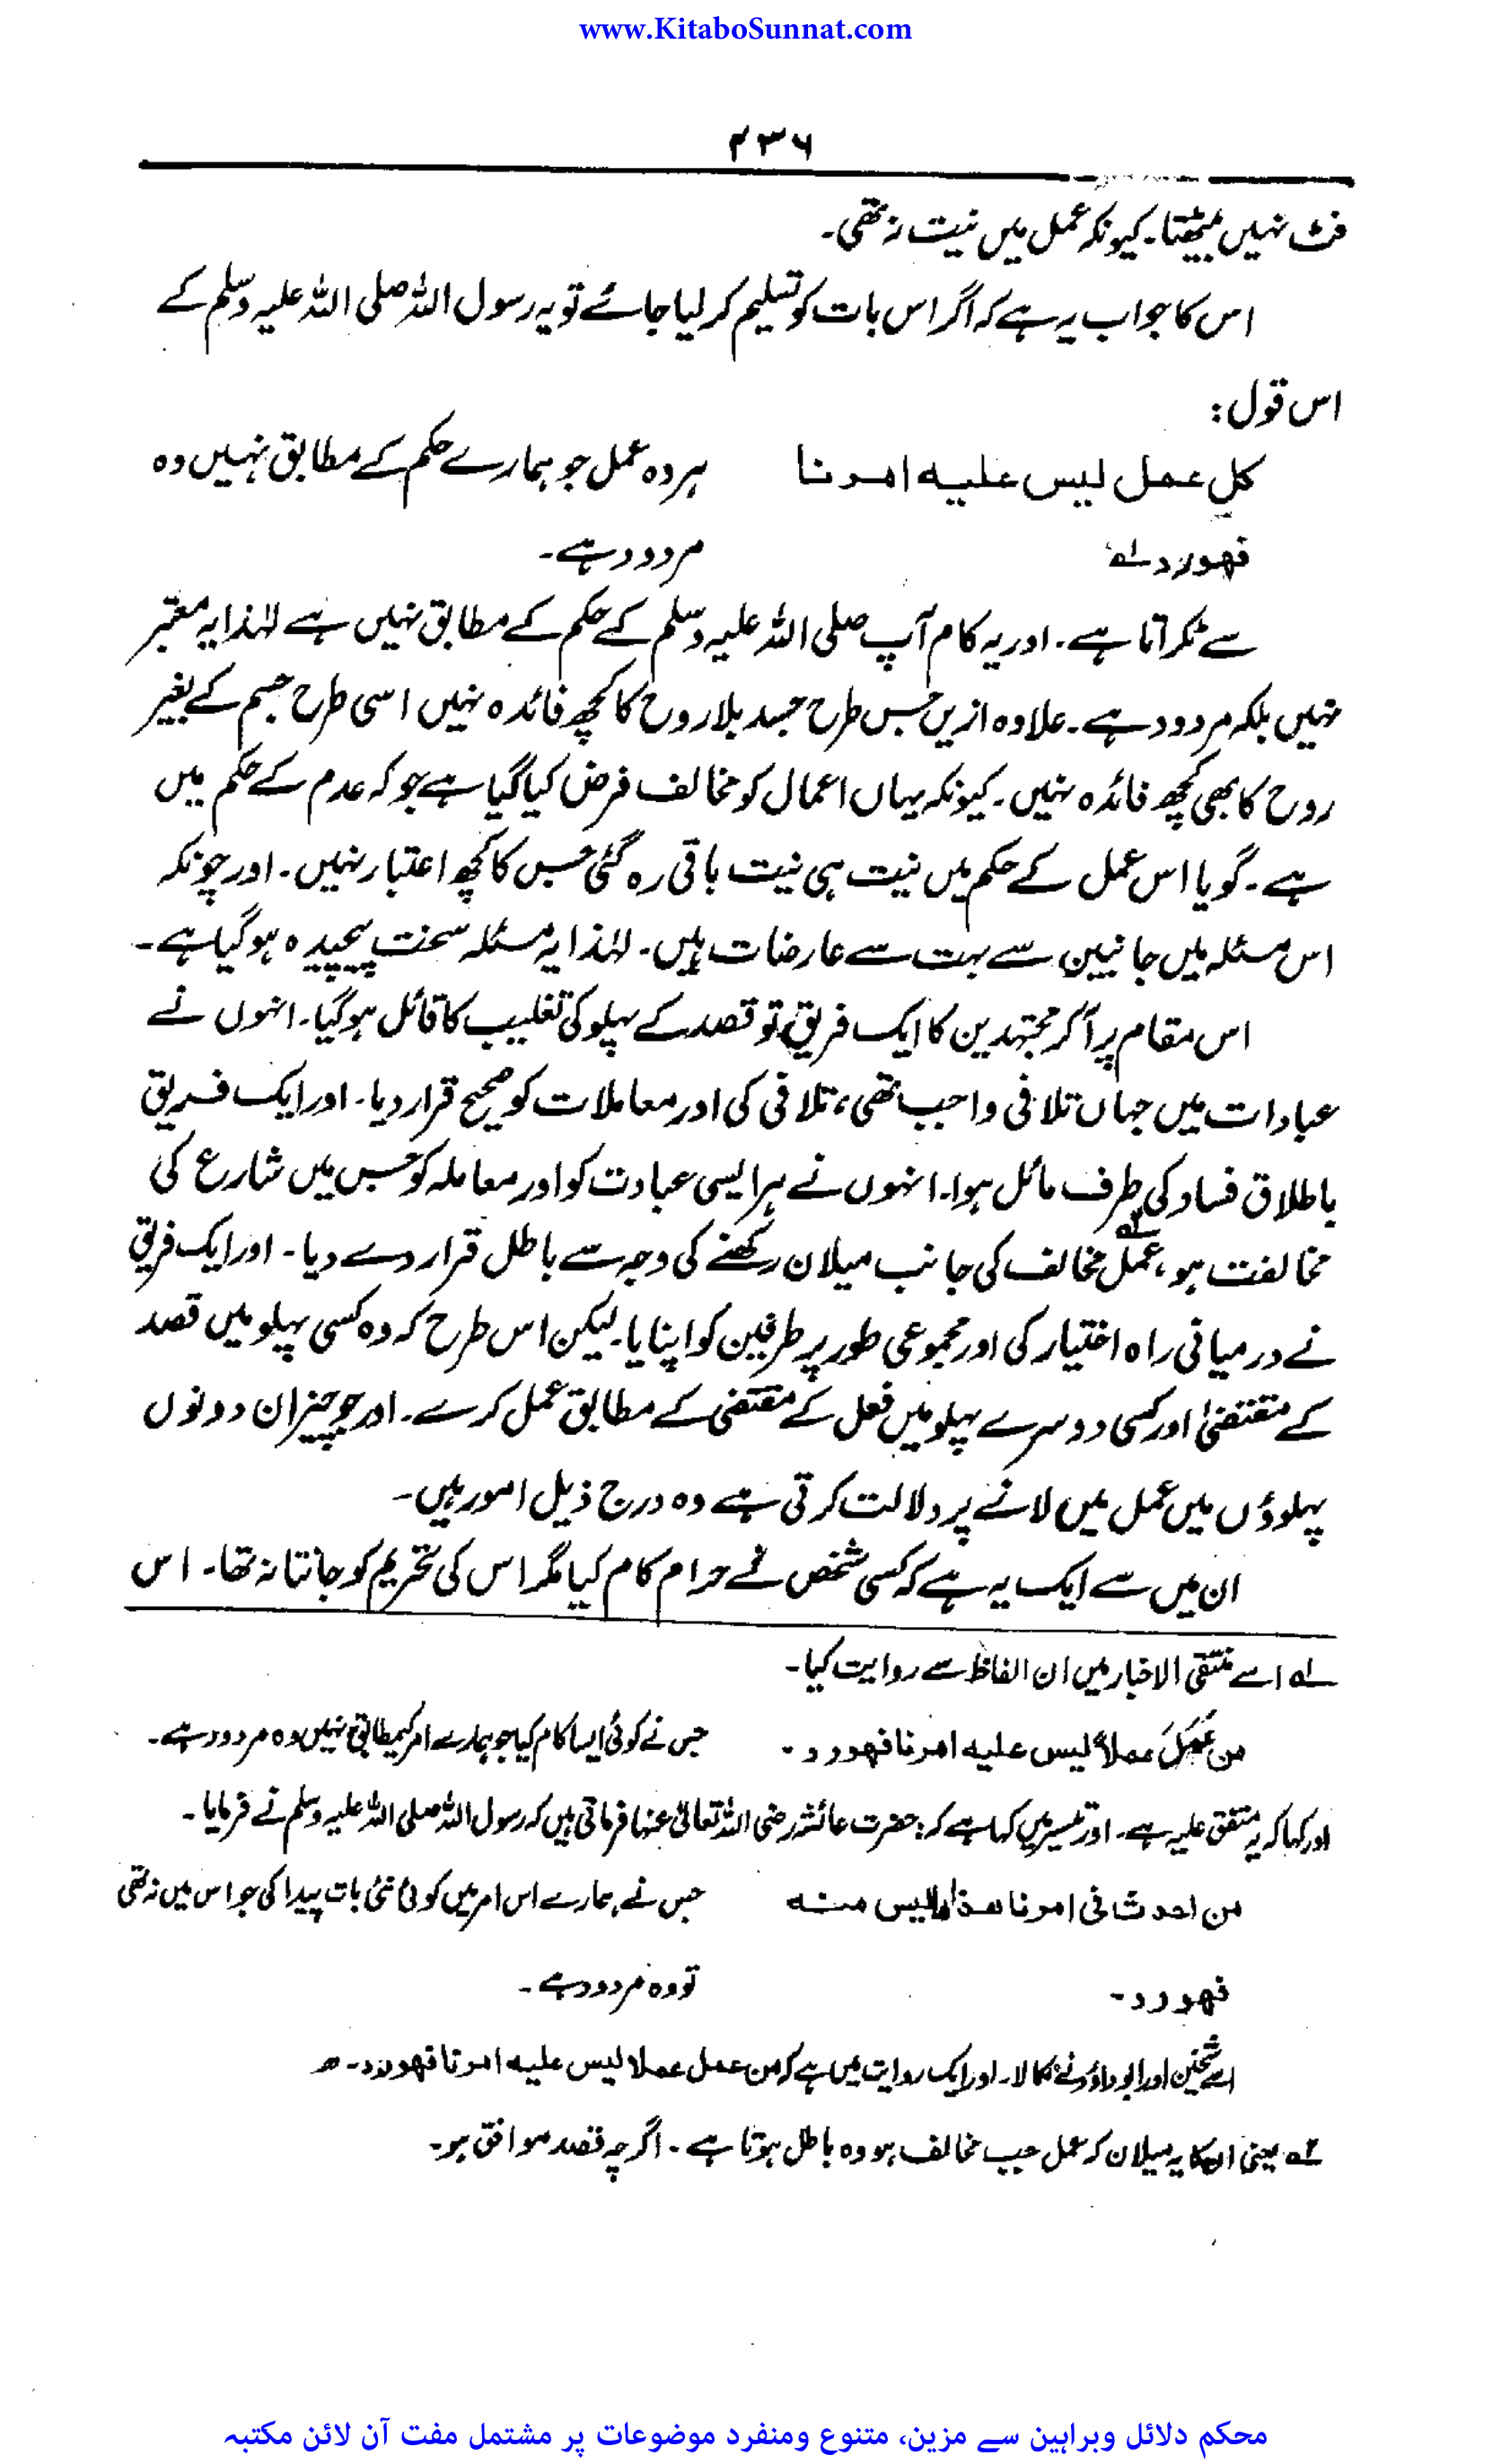 www.KitaboSunnat.com
۲۳۶
فٹ نہیں بیٹھتا۔ کیونکہ عمل میں نیت نہ تھی۔
اس کا جواب یہ ہے کہ اگر اس بات کو تسلیم کر لیا جائے تو یہ رسول اللہ صلی اللہ علیہ وسلم کے
اس قول:
کل عمل لیس علیہ امرنا ہر وہ عمل جو ہمارے حکم کے مطابق نہیں وہ
فھو رد لہ مردود ہے۔
سے ٹکراتا ہے۔ اور یہ کام آپ صلی اللہ علیہ وسلم کے حکم کے مطابق نہیں ہے لہٰذا یہ معتبر
نہیں بلکہ مردود ہے۔ علاوہ ازیں جس طرح جسد بلا روح کا کچھ فائدہ نہیں اسی طرح جسم کے بغیر
روح کا بھی کچھ فائدہ نہیں۔ کیونکہ یہاں اعمال کو مخالف فرض کیا گیا ہے جو کہ عدم کے حکم میں
ہے۔ گویا اس عمل کے حکم میں نیت ہی نیت باقی رہ گئی جس کا کچھ اعتبار نہیں۔ اور چونکہ
اس مسئلہ میں جانبین سے بہت سے عارضات ہیں۔ لہٰذا یہ مسئلہ سخت پیچیدہ ہو گیا ہے۔
اس مقام پر آ کر مجتہدین کا ایک فریق تو قصد کے پہلو کی تغلیب کا قائل ہو گیا۔ انہوں نے
عبادات میں جہاں تلافی واجب تھی، تلافی کی اور معاملات کو صحیح قرار دیا۔ اور ایک فریق
باطلاق فساد کی طرف مائل ہوا۔ انہوں نے ہر ایسی عبادت کو اور معاملہ کو جس میں شارع کی
مخالفت ہو، عمل مخالف کی جانب میلان رکھنے کی وجہ سے باطل قرار دے دیا۔ اور ایک فریق
نے درمیانی راہ اختیار کی اور مجموعی طور پر طرفین کو اپنایا۔ لیکن اس طرح کہ وہ کسی پہلو میں قصد
کے مقتضیٰ اور کسی دوسرے پہلو میں فعل کے مقتضیٰ کے مطابق عمل کرے۔ اور جو چیز ان دونوں
پہلوؤں میں عمل میں لانے پر دلالت کرتی ہے وہ درج ذیل امور ہیں۔
ان میں سے ایک یہ ہے کہ کسی شخص نے حرام کام کیا مگر اس کی تحریم کو جانتا نہ تھا۔ اس
لہ اسے منتقی الاخبار میں ان الفاظ سے روایت کیا۔
من عَمِلَ عملاً لیس علیہ امرنا فھو رد۔ جس نے کوئی ایسا کام کیا جو ہمارے امر کیمطابق نہیں وہ مردود ہے۔
اور کہا کہ یہ متفق علیہ ہے۔ اور تیسیر میں کہا ہے کہ: حضرت عائشہ رضی اللہ تعالیٰ عنہا فرماتی ہیں کہ رسول اللہ صلی اللہ علیہ وسلم نے فرمایا۔
من احدث فی امرنا ھذا مالیس منہ جس نے ہمارے اس امر میں کوئی نئی بات پیدا کی جو اس میں نہ تھی
فھو رد۔ تو وہ مردود ہے۔
اسے شیخین اور ابو داؤد نے نکالا۔ اور ایک روایت میں ہے کہ من عمل عملا لیس علیہ امرنا فھو رد۔
۲ہ یعنی ان کا یہ میلان کہ عمل جب مخالف ہو وہ باطل ہوتا ہے۔ اگرچہ قصد موافق ہو۔
محکم دلائل وبراہین سے مزین، متنوع ومنفرد موضوعات پر مشتمل مفت آن لائن مکتبہ